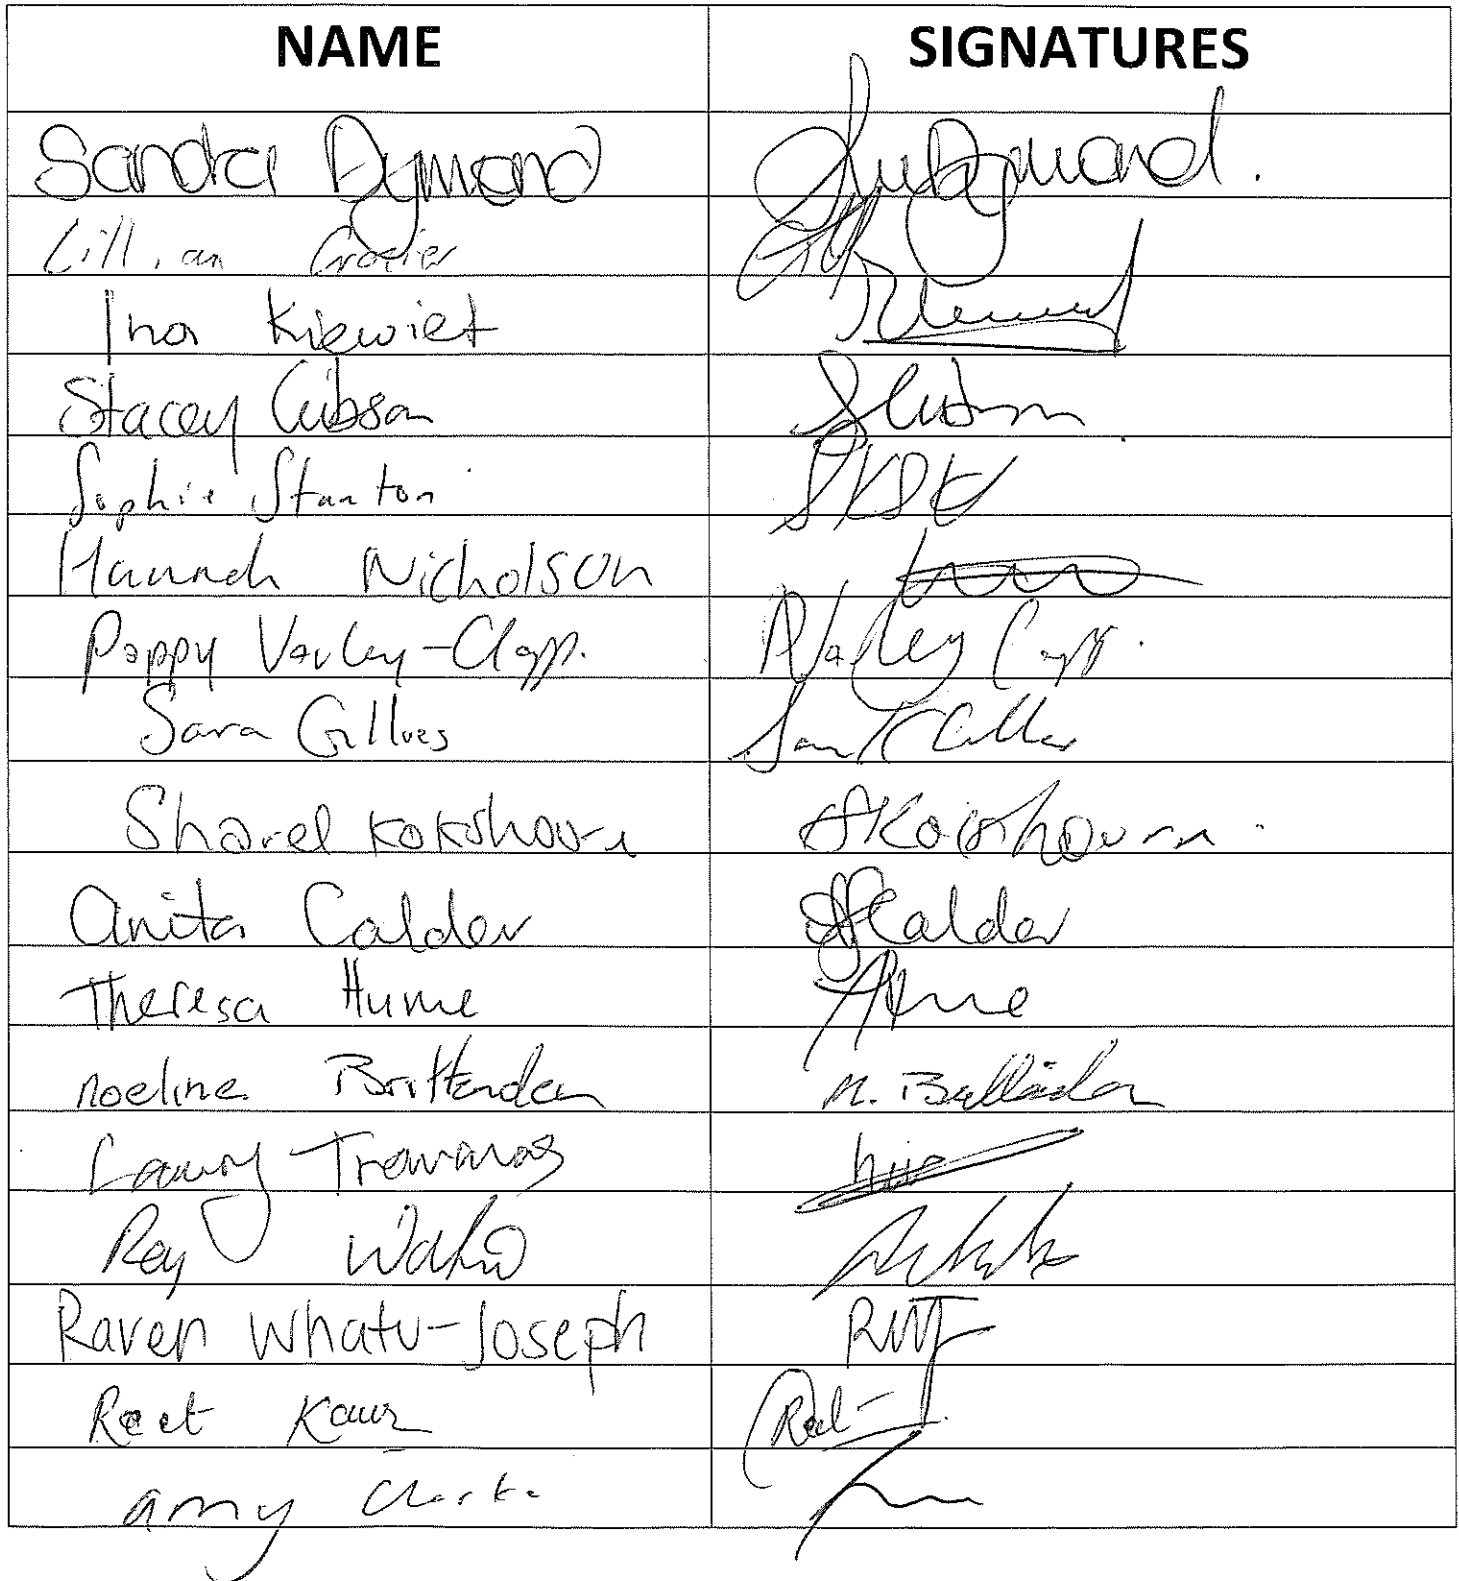 NAME SIGNATURES
Sandra Dymond Dymond.
Lillian Crozier
Ina Kiewiet
Stacey Gibson SGibson
Sophie Stanton
Hannah Nicholson
Poppy Varley-Clapp. PVarley Clapp.
Sara Gillies
Sharel Kokshoorn SKokshoorn
Anita Calder ACalder
Theresa Hume Hume
Noeline Brittenden N. Brittenden
Ray
Raven Whatu-Joseph RWJ
Reet Kaur Reet
Amy Clarke